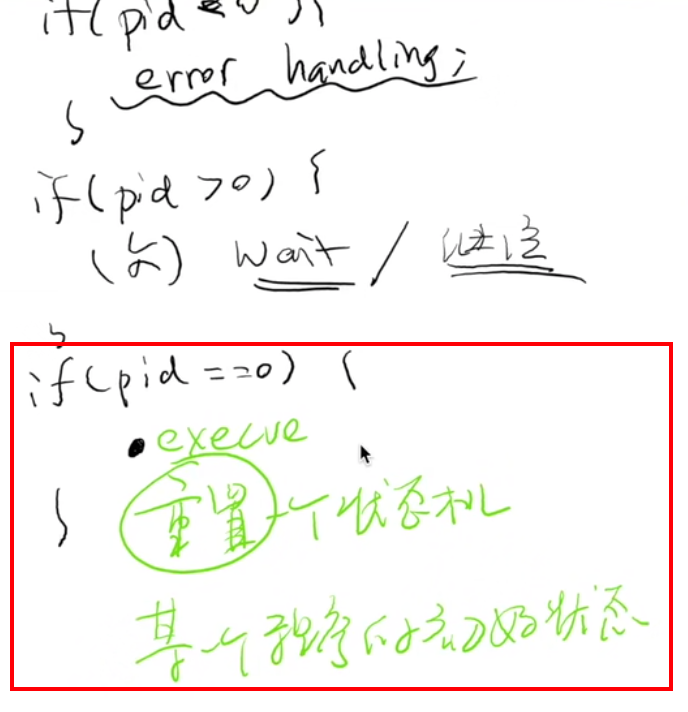 if(pid < 0) {
error handling;
}
if(pid >0) {
(父) wait / 继续
}
if(pid ==0) {
execve
重置一个状态机
}
某个程序的初始状态